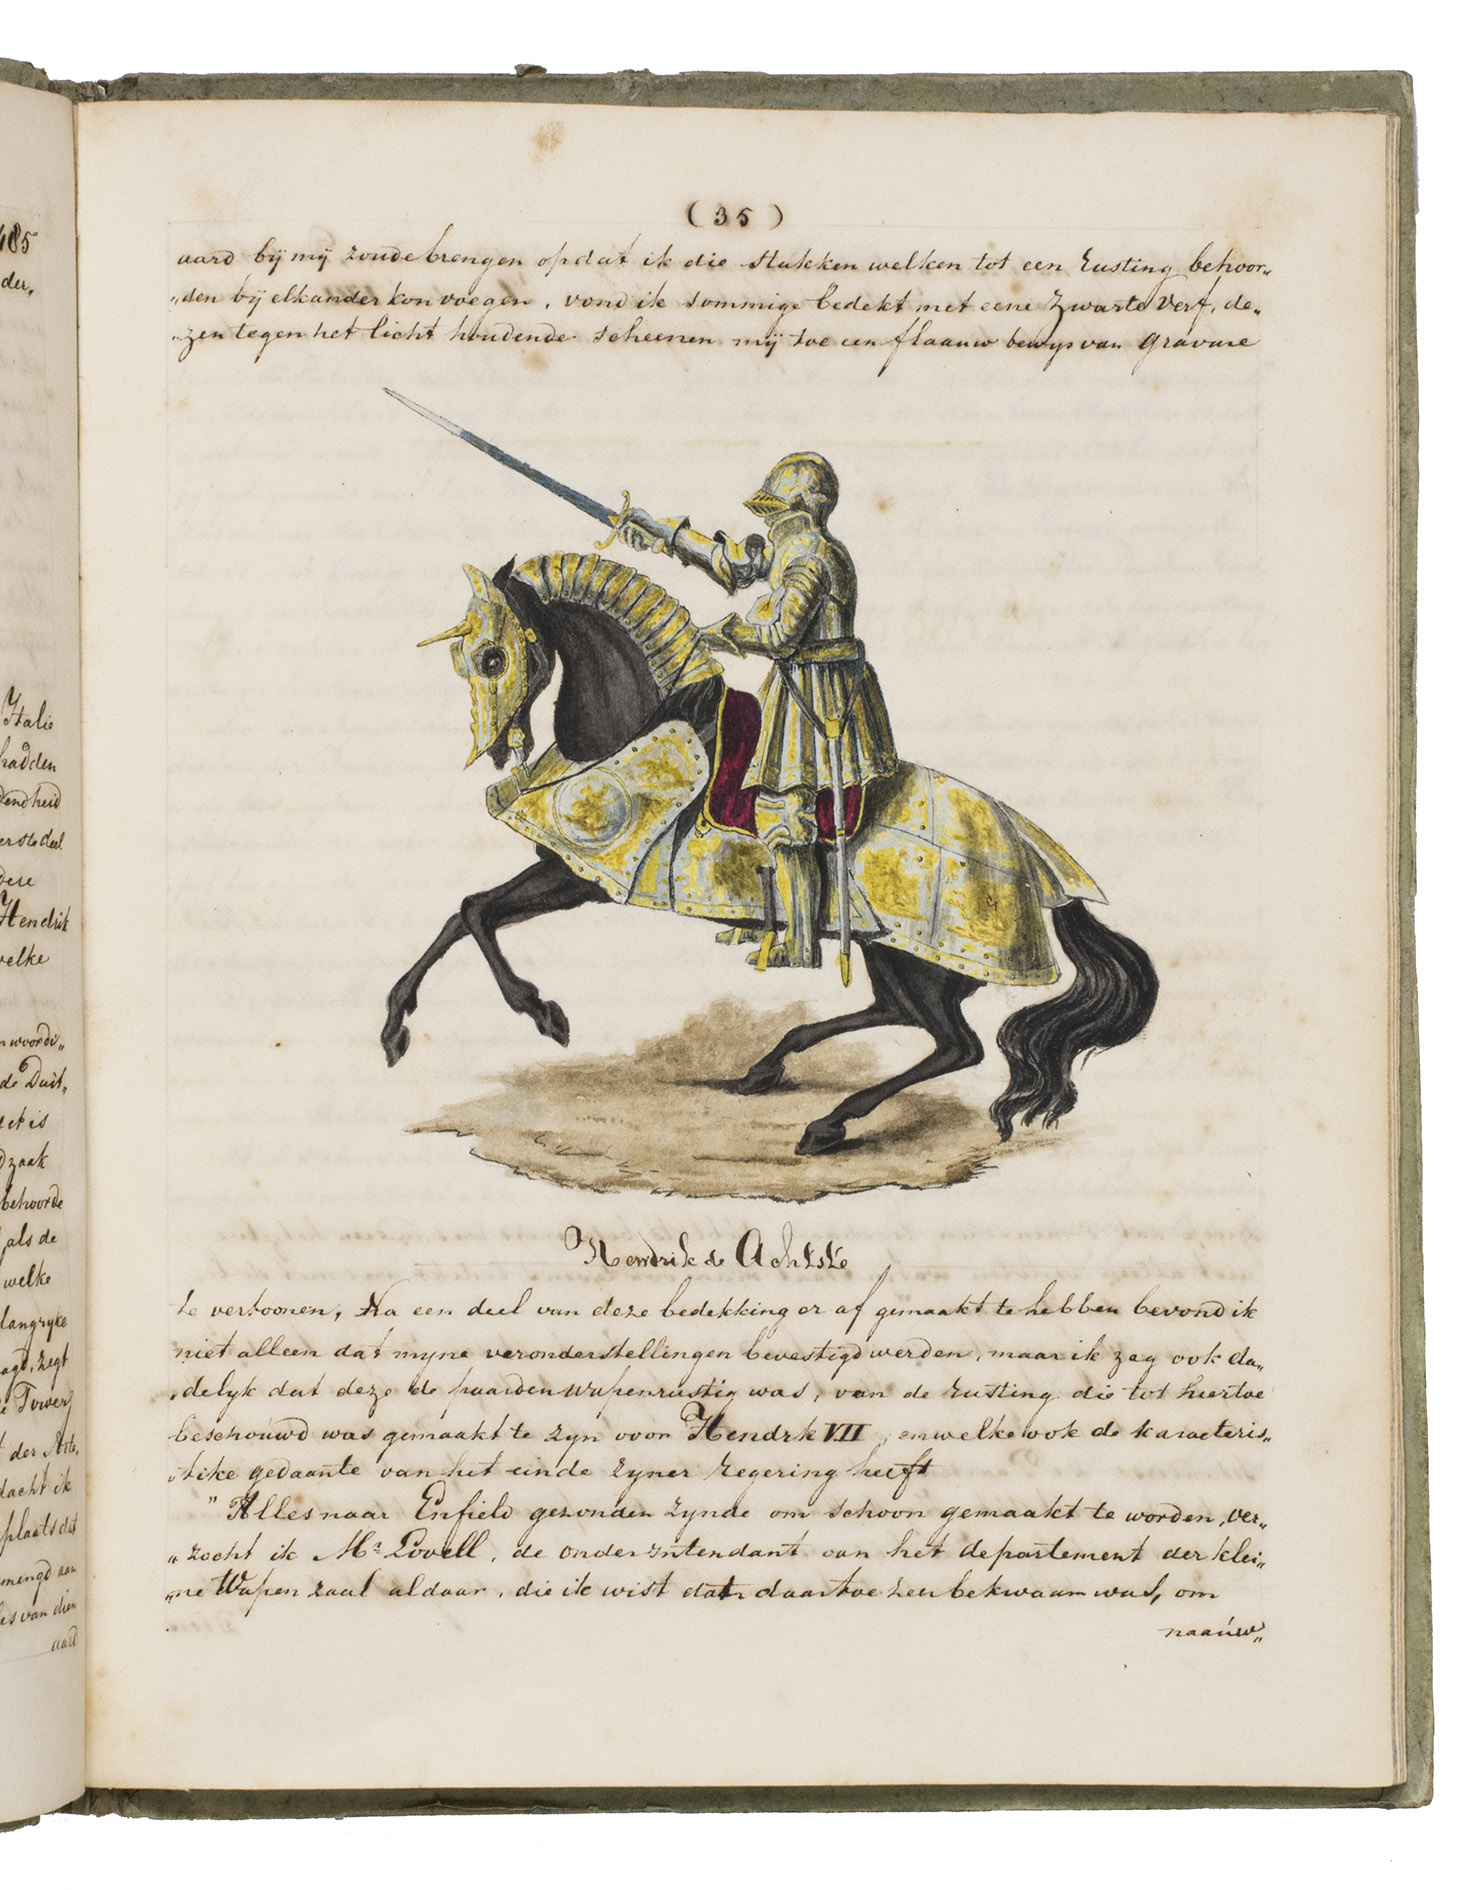 485
der,
Italie
hadden
dendheid
erste deel
dere
Hendrik
welke
nwoordi„
de Duit„
het is
dzaak
behoorde
als de
welke
langryke
aagt, zegt
e Tower
t der Arte„
dacht ik
plaats dat
mengd aan
les van dien
aard
( 35 )
aard bÿ mÿ zoude brengen opdat ik die stukken welken tot een rusting behoor„
„den bÿ elkander kon voegen, vond ik sommige bedekt met eene zwarte verf, de„
„zen tegen het licht houdende scheenen mÿ toe een flaauw bewys van gravure
Hendrik de Achtste
te vertoonen, Na een deel van deze bedekking er af gemaakt te hebben bevond ik
niet alleen dat myne veronderstellingen bevestigd werden, maar ik zag ook da„
„delyk dat deze de paarden wapenrustig was, van de rusting die tot hiertoe
beschouwd was gemaakt te zyn voor Hendrk VII, en welke ook de karacteris„
„tike gedaante van het einde zyner regering heeft
" Alles naar Enfield gezonden zynde om schoon gemaakt te worden, ver„
„zocht ik Mr Lovell, de onder intendant van het departement der klei„
„ne Wapen zaal aldaar, die ik wist dat daartoe zeer bekwaam was, om
naauw„